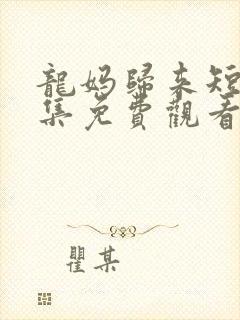 龍媽歸來短
集免費觀看
瞿某